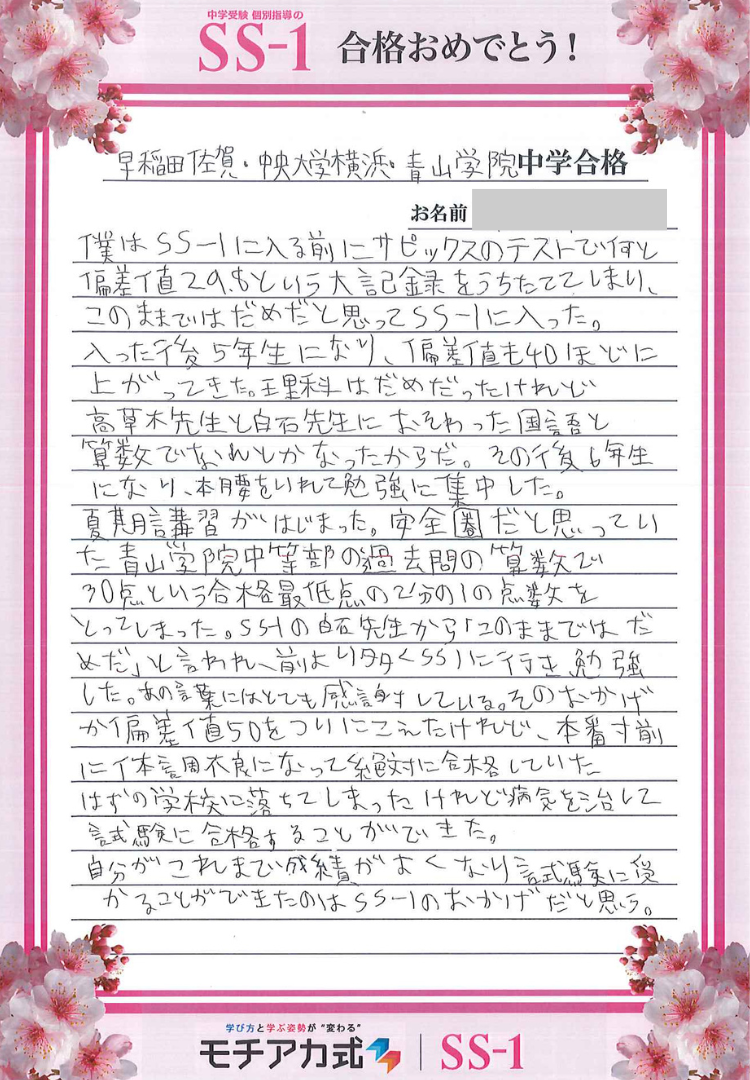 中学受験 個別指導の
SS-1 合格おめでとう!
早稲田佐賀・中央大学横浜・青山学院中学合格
お名前
僕はSS-1に入る前にサピックスのテストで何と
偏差値29.8という大記録をうちたててしまい、
このままではだめだと思ってSS-1に入った。
入った後5年生になり、偏差値も40ほどに
上がってきた。理科はだめだったけれど
高草木先生と白石先生におそわった国語と
算数でなんとかなったからだ。その後6年生
になり、本腰をいれて勉強に集中した。
夏期講習がはじまった。安全圏だと思ってい
た青山学院中等部の過去問の算数で
30点という合格最低点の2分の1の点数を
とってしまった。SS-1の白石先生から「このままではだ
めだ」と言われ、前より多くSS1に行き勉強
した。あの言葉にはとても感謝している。そのおかげ
か偏差値50をついにこえたけれど、本番寸前
に体調不良になって絶対に合格していた
はずの学校に落ちてしまったけれど病気を治して
試験に合格することができた。
自分がこれまで成績がよくなり試験に受
かることができたのはSS-1のおかげだと思う。
学び方と学ぶ姿勢が"変わる"
モチアカ式 | SS-1